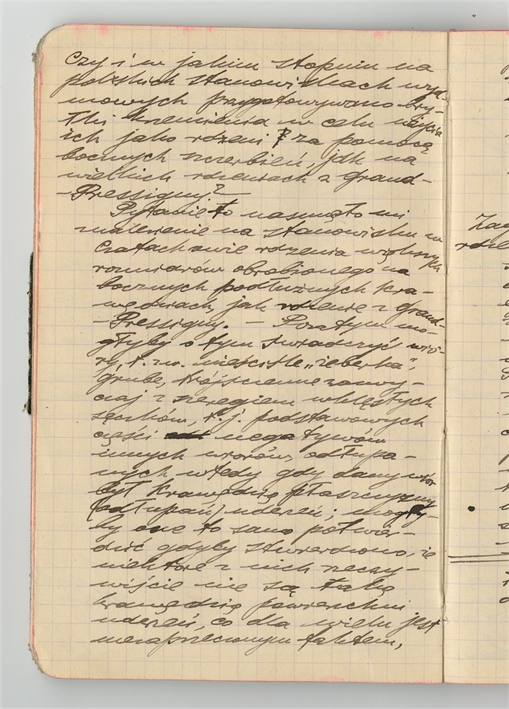 Czy i w jakim stopniu na
polskich stanowiskach wyd-
mowych przygotowywano bry-
łki krzemienia w celu użycia
ich jako rdzeni za pomocą
bocznych szczerbień, jak na
wielkich rdzeniach z Grand-
-Pressigny?
Pytanie to nasunęło mi
znalezienie na stanowisku w
Czatachowie rdzenia większych
rozmiarów obrobionego na
bocznych podłużnych kra-
wędziach jak rdzenie z Grand-
-Pressigny. - Poza tym mo-
głyby o tym świadczyć wió-
ry, t. zw. nieściśle "żeberka",
grube, trójścienne zazwy-
czaj z szeregiem wklęsłych
sęczków, t. j. podstawowych
części negatywów
innych wiórów, odłupa-
nych wtedy gdy dany wiór
był krawędzią płaszczyzny
(odłupań) uderzeń; mogły-
by one to samo potwier-
dzić gdyby stwierdzono, że
niektóre z nich rzeczy-
wiście nie są taką
krawędzią powierzchni
uderzeń, co dla wielu jest
niezaprzeczonym faktem,